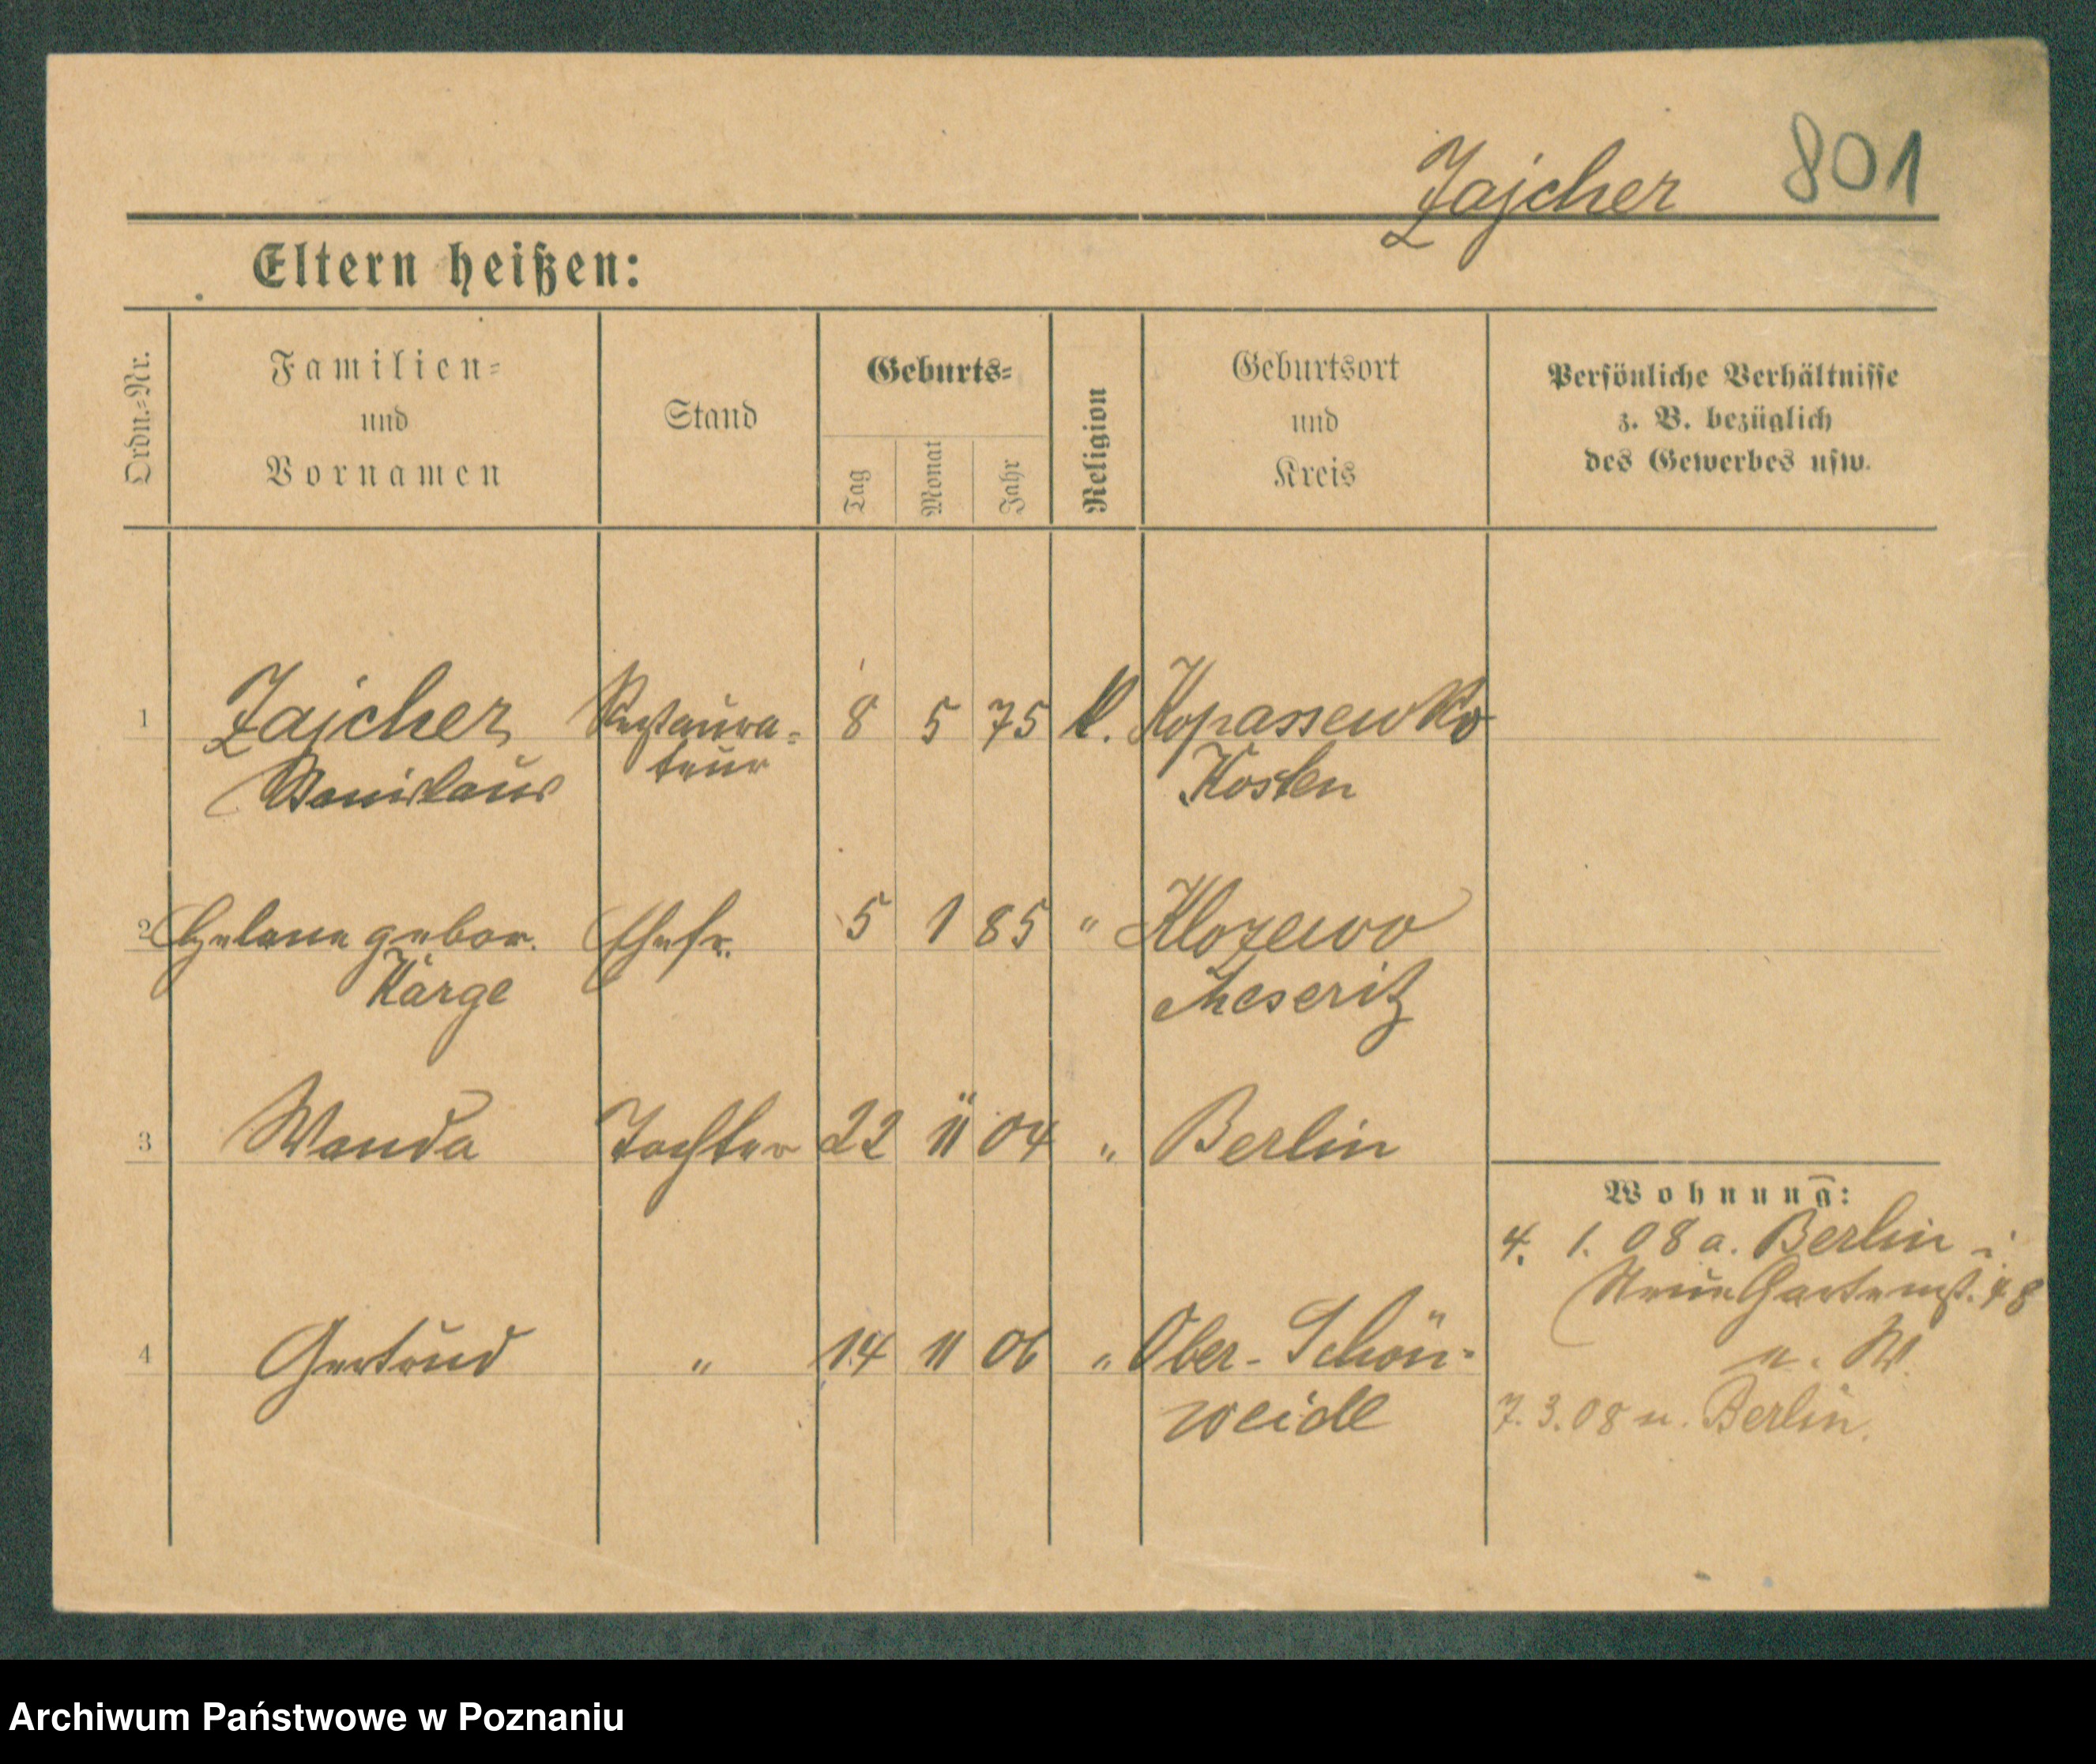 Zajcher 801
Eltern heißen:
Ordn.=Nr.
Familien=
und
Vornamen
Stand
Geburts=
Tag
Monat
Jahr
Religion
Geburtsort
und
Kreis
Persönliche Verhältnisse
z. B. bezüglich
des Gewerbes usw.
1 Zajcher Restaura= 8 5 75 k. Kopassewko
Stanislaus teur Kosten
2 Helene gebor. Ehefr. 5 1 85 " Klozewo
Kärge Meseritz
3 Wanda Tochter 22 11 04 " Berlin
Wohnung:
4. 1. 08 a. Berlin
Neue Gartenst.
4 Gertrud " 14 11 06 " Ober-Schön-
weide
7. 3. 08 n. Berlin.
Archiwum Państwowe w Poznaniu